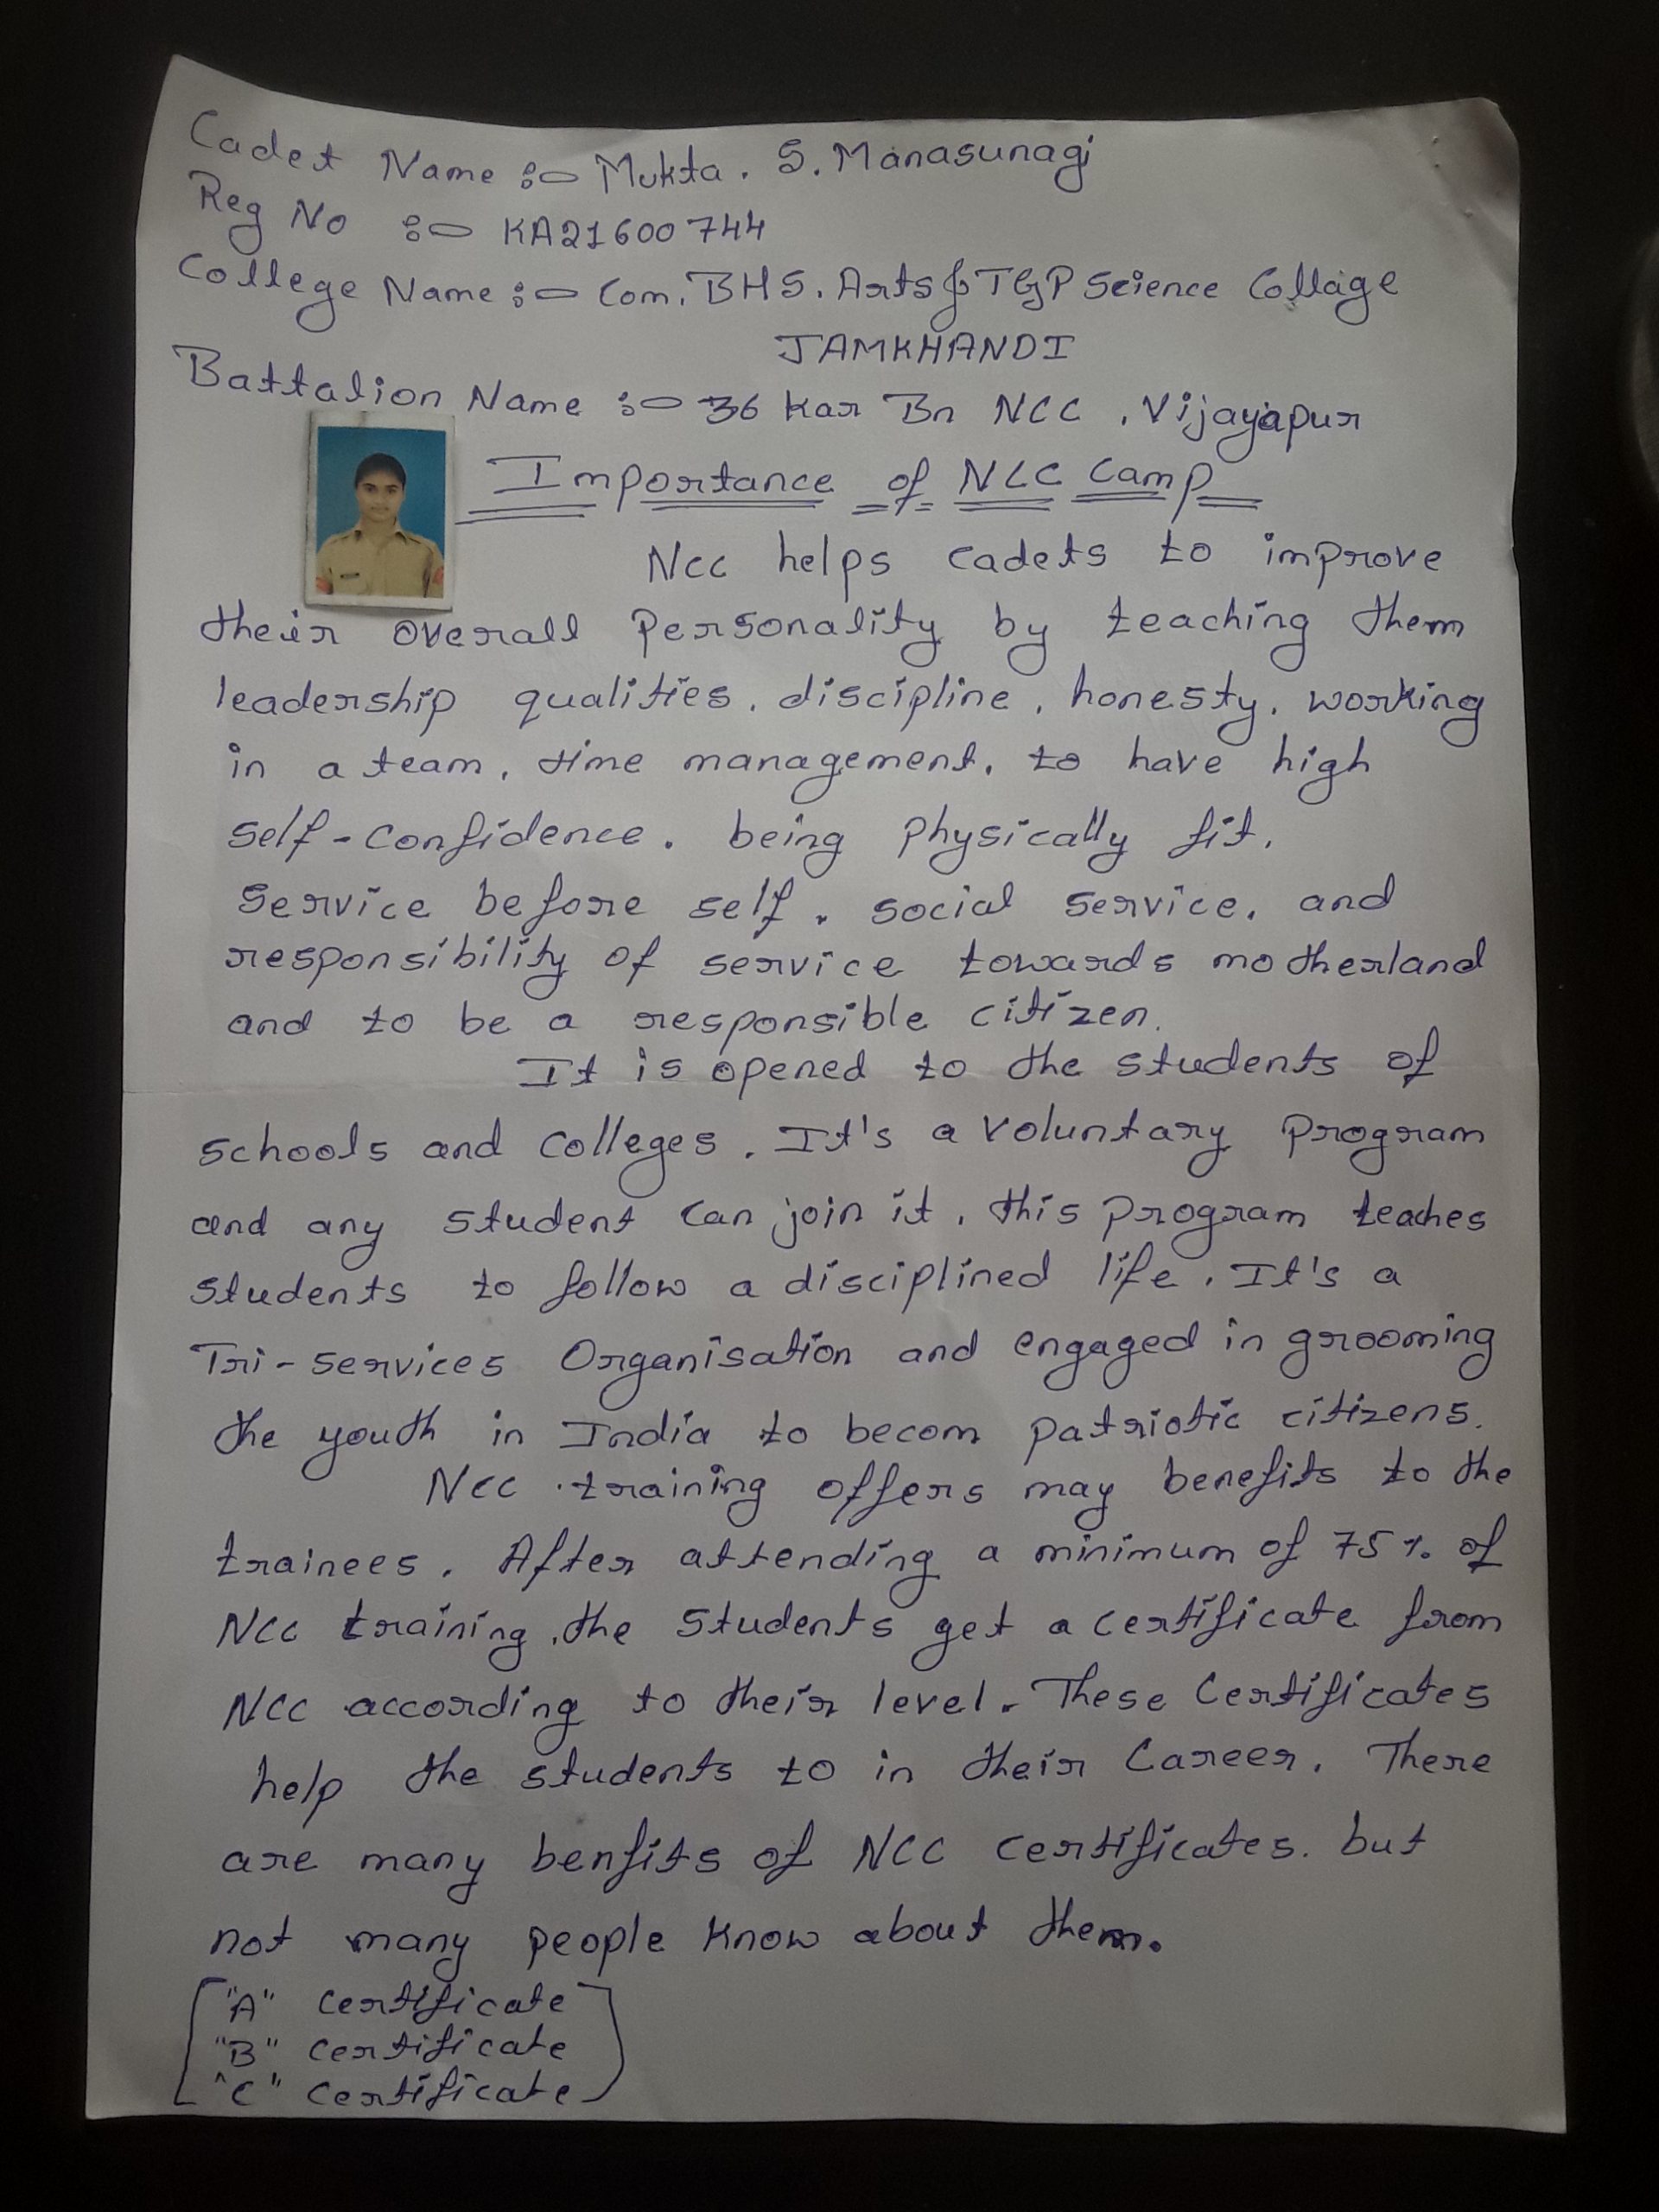 Cadet Name :- Mukta. S. Manasunagi
Reg No :- KA21600744
College Name :- Com. BHS. Arts & TGP Science Collage
JAMKHANDI
Battalion Name :- 36 Kar Bn NCC, Vijayapur
Importance of NCC Camp
NCC helps cadets to improve
their overall personality by teaching them
leadership qualities, discipline, honesty, working
in a team, time management, to have high
self-confidence, being physically fit,
service before self, social service, and
responsibility of service towards motherland
and to be a responsible citizen.
It is opened to the students of
schools and colleges. It's a voluntary program
and any student can join it, this program teaches
students to follow a disciplined life. It's a
Tri-services Organisation and engaged in grooming
the youth in India to becom patriotic citizens.
NCC training offers may benefits to the
trainees. After attending a minimum of 75% of
NCC training, the students get a certificate from
NCC according to their level. These Certificates
help the students to in their Career. There
are many benfits of NCC certificates. but
not many people know about them.
"A" certificate
"B" certificate
"C" certificate